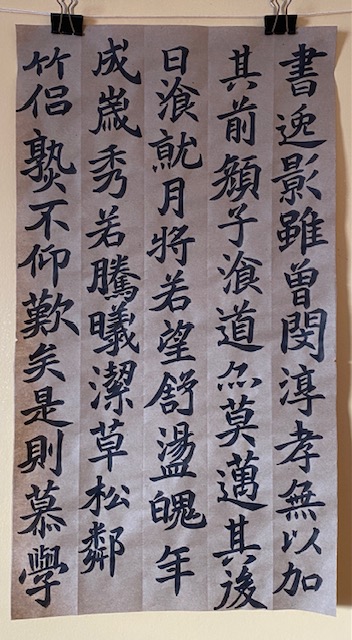 書逸影雖曾閔淳孝無以加
其前顏子飡道亦莫邁其後
日飡就月將若望舒盪魄年
成嵗秀若騰曦潔草松鄰
竹侶熟不仰歎矣是則慕學